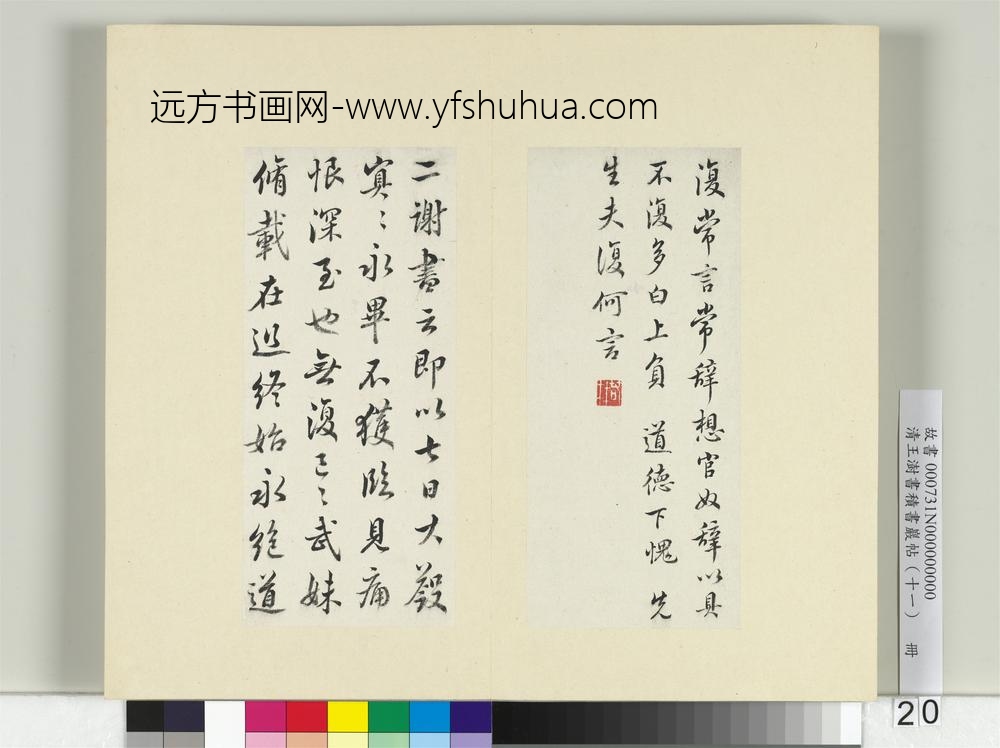 远方书画网-www.yfshuhua.com
復常言常辞想官奴辞以具
不復多白上負 道德下愧 先
生夫復何言
二謝書云即以七日大殮
冥〻永畢不獲臨見痛
恨深至也無復已〻武妹
脩載在道終始永絕道
故書 000731N000000000
清王澍書積書巖帖(十一) 冊
20